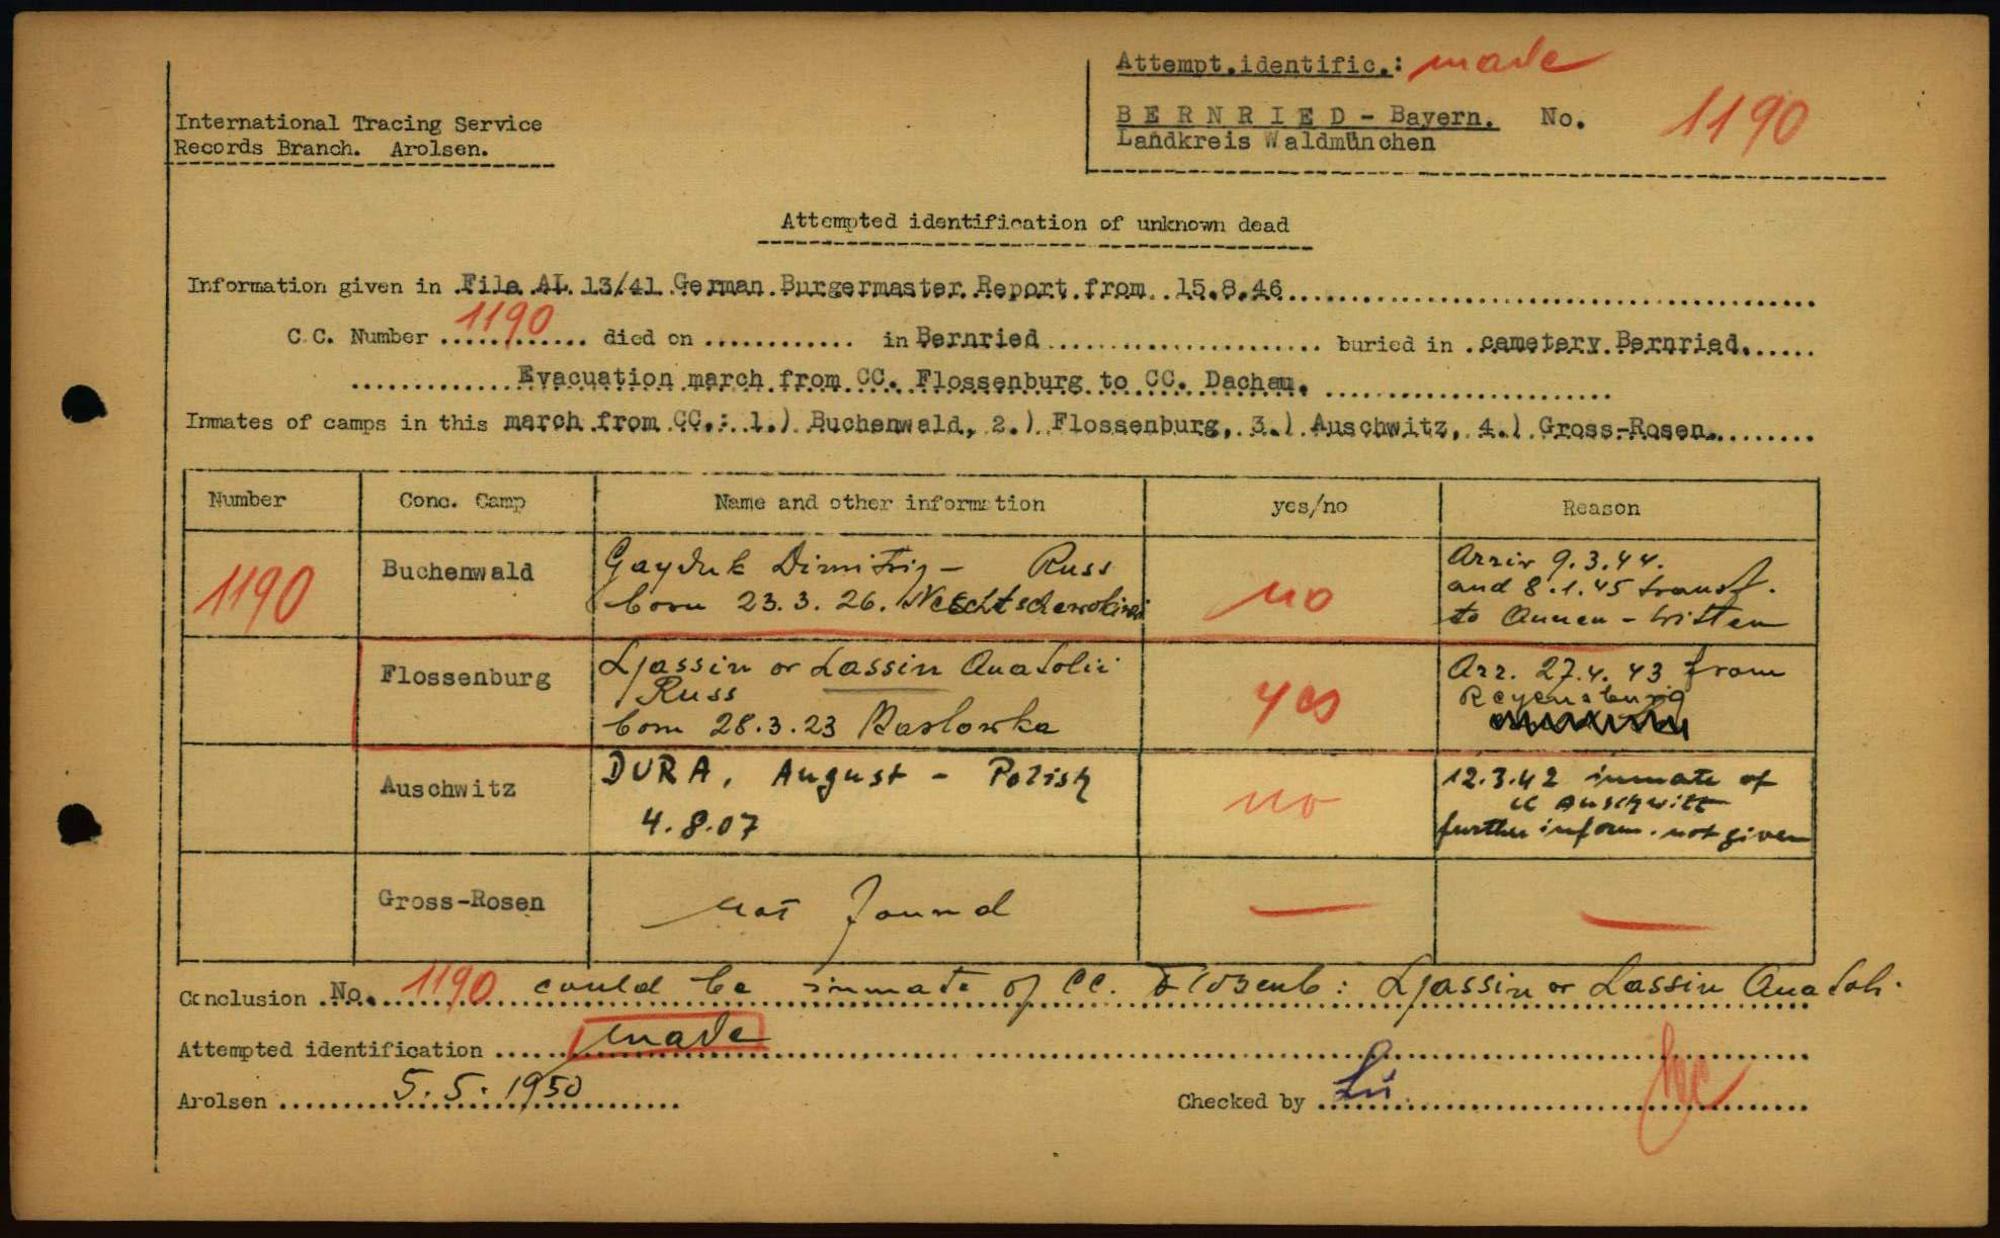 Attempt.identific.: made
BERNRIED - Bayern. No. 1190
Landkreis Waldmünchen
International Tracing Service
Records Branch. Arolsen.
Attempted identification of unknown dead
Information given in File AL 13/41 German Burgermaster Report from 15.8.46
C.C. Number 1190 died on ............ in Bernried buried in cemetery Bernried.
Evacuation march from CC. Flossenburg to CC. Dachau.
Inmates of camps in this march from CC.: 1.) Buchenwald, 2.) Flossenburg, 3.) Auschwitz, 4.) Gross-Rosen.
Number Conc. Camp Name and other information yes/no Reason
1190 Buchenwald Gayduk Dimitrij - Russ
born 23.3.26.
no
Arriv 9.3.44.
and 8.1.45 transf.
to Annen - Witten
Flossenburg Ljassin or Lassin Anatolii
Russ
born 28.3.23 Maslowka
yes
Arr. 27.4.43 from
Regensburg
Auschwitz DURA, August - Polish
4.8.07
no
12.3.42 inmate of
CC Auschwitz
further inform. not given
Gross-Rosen Not found — —
Conclusion No. 1190 could be inmate of CC. Flossenb: Ljassin or Lassin Anatoli.
Attempted identification made
Arolsen 5.5.1950 Checked by Lü